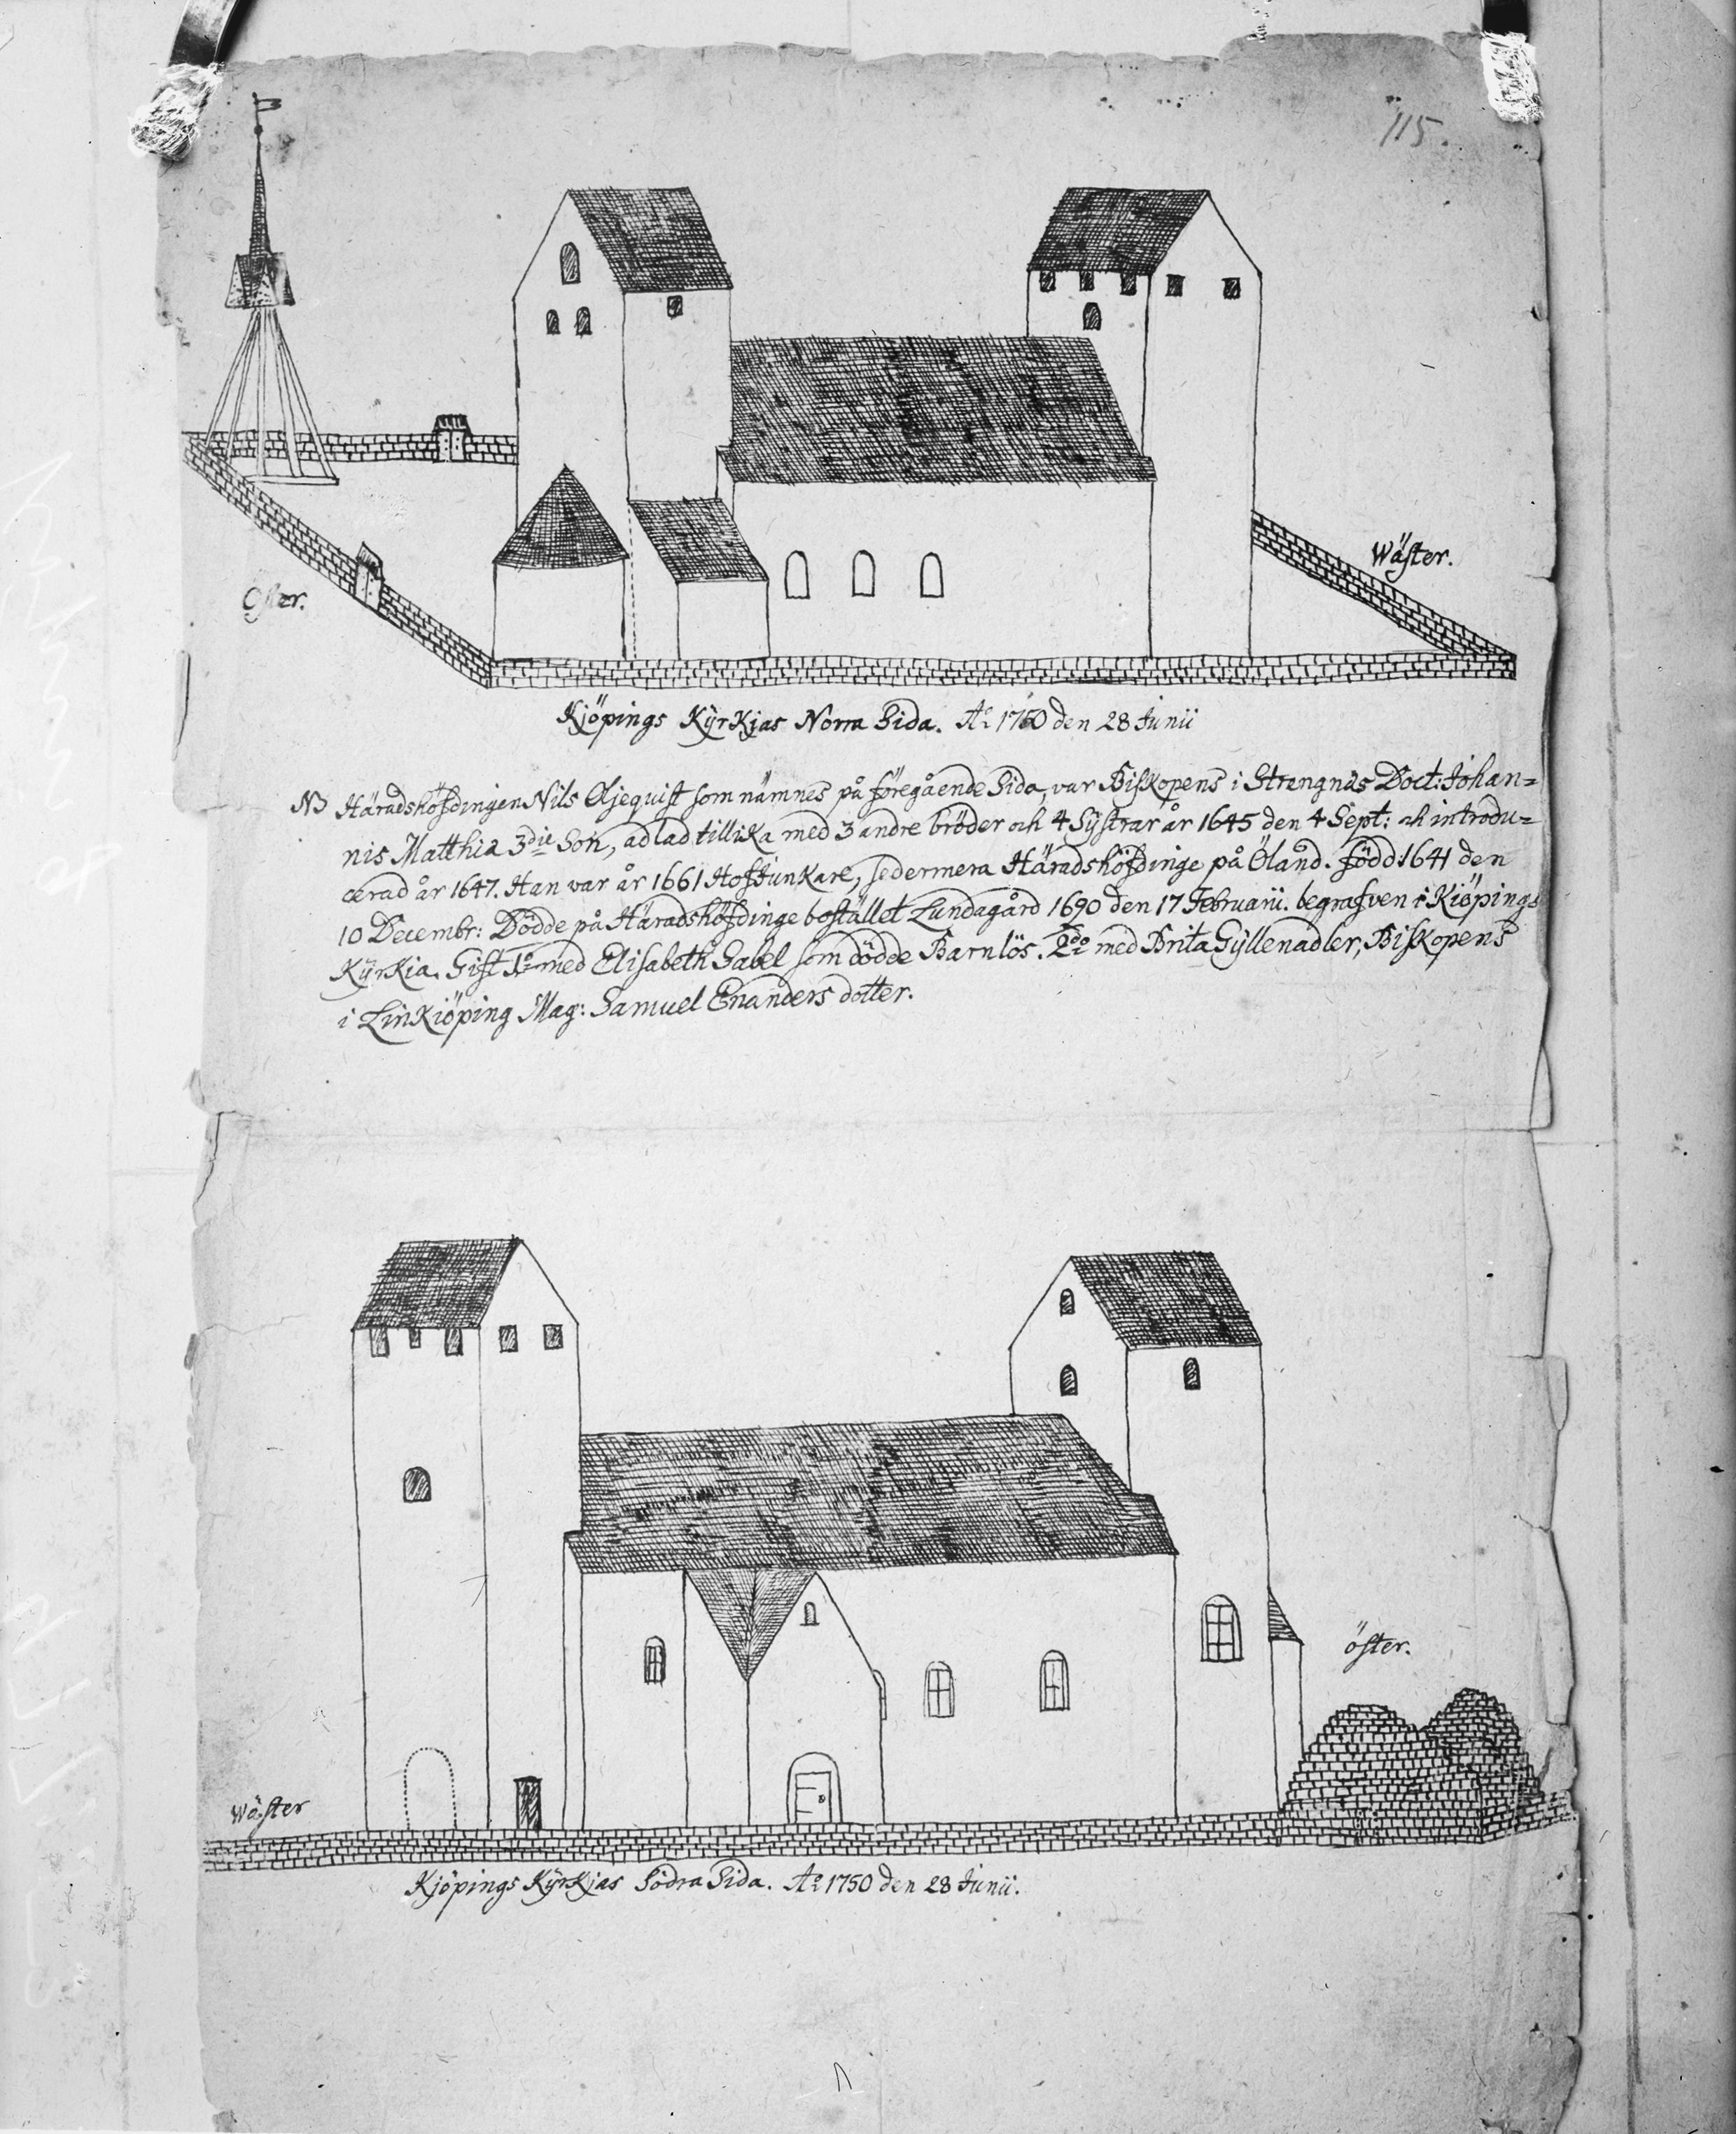 115.
Öster.
Wäster.
Kjöpings Kÿrkjas Norra Sida. Aº 1750 den 28 Junii
NB Häradshöfdingen Nils Oljequist som nämnes på föregående Sida, var Biskopens i Strengnäs Doct: Johan=
nis Matthiæ 3die Son, adlad tillika med 3 andre bröder och 4 Sÿstrar år 1645 den 4 Sept: och introdu=
cerad år 1647. Han var år 1661 Hof Junkare, sedermera Häradshöfdinge på Öland. född 1641 den
10 Decembr: Dödde på Häradshöfdinge bostället Lundagård 1690 den 17 Februarii. begrafven i Kiöpings
Kÿrkia. Gift 1º med Elisabeth Gabel som dödde Barnlös. 2do med Brita Gÿllenadler, Biskopens
i Linkiöping Mag: Samuel Enanders dotter.
öster.
Wäster
Kjöpings Kÿrkjas Södra Sida. Aº 1750 den 28 Junii.